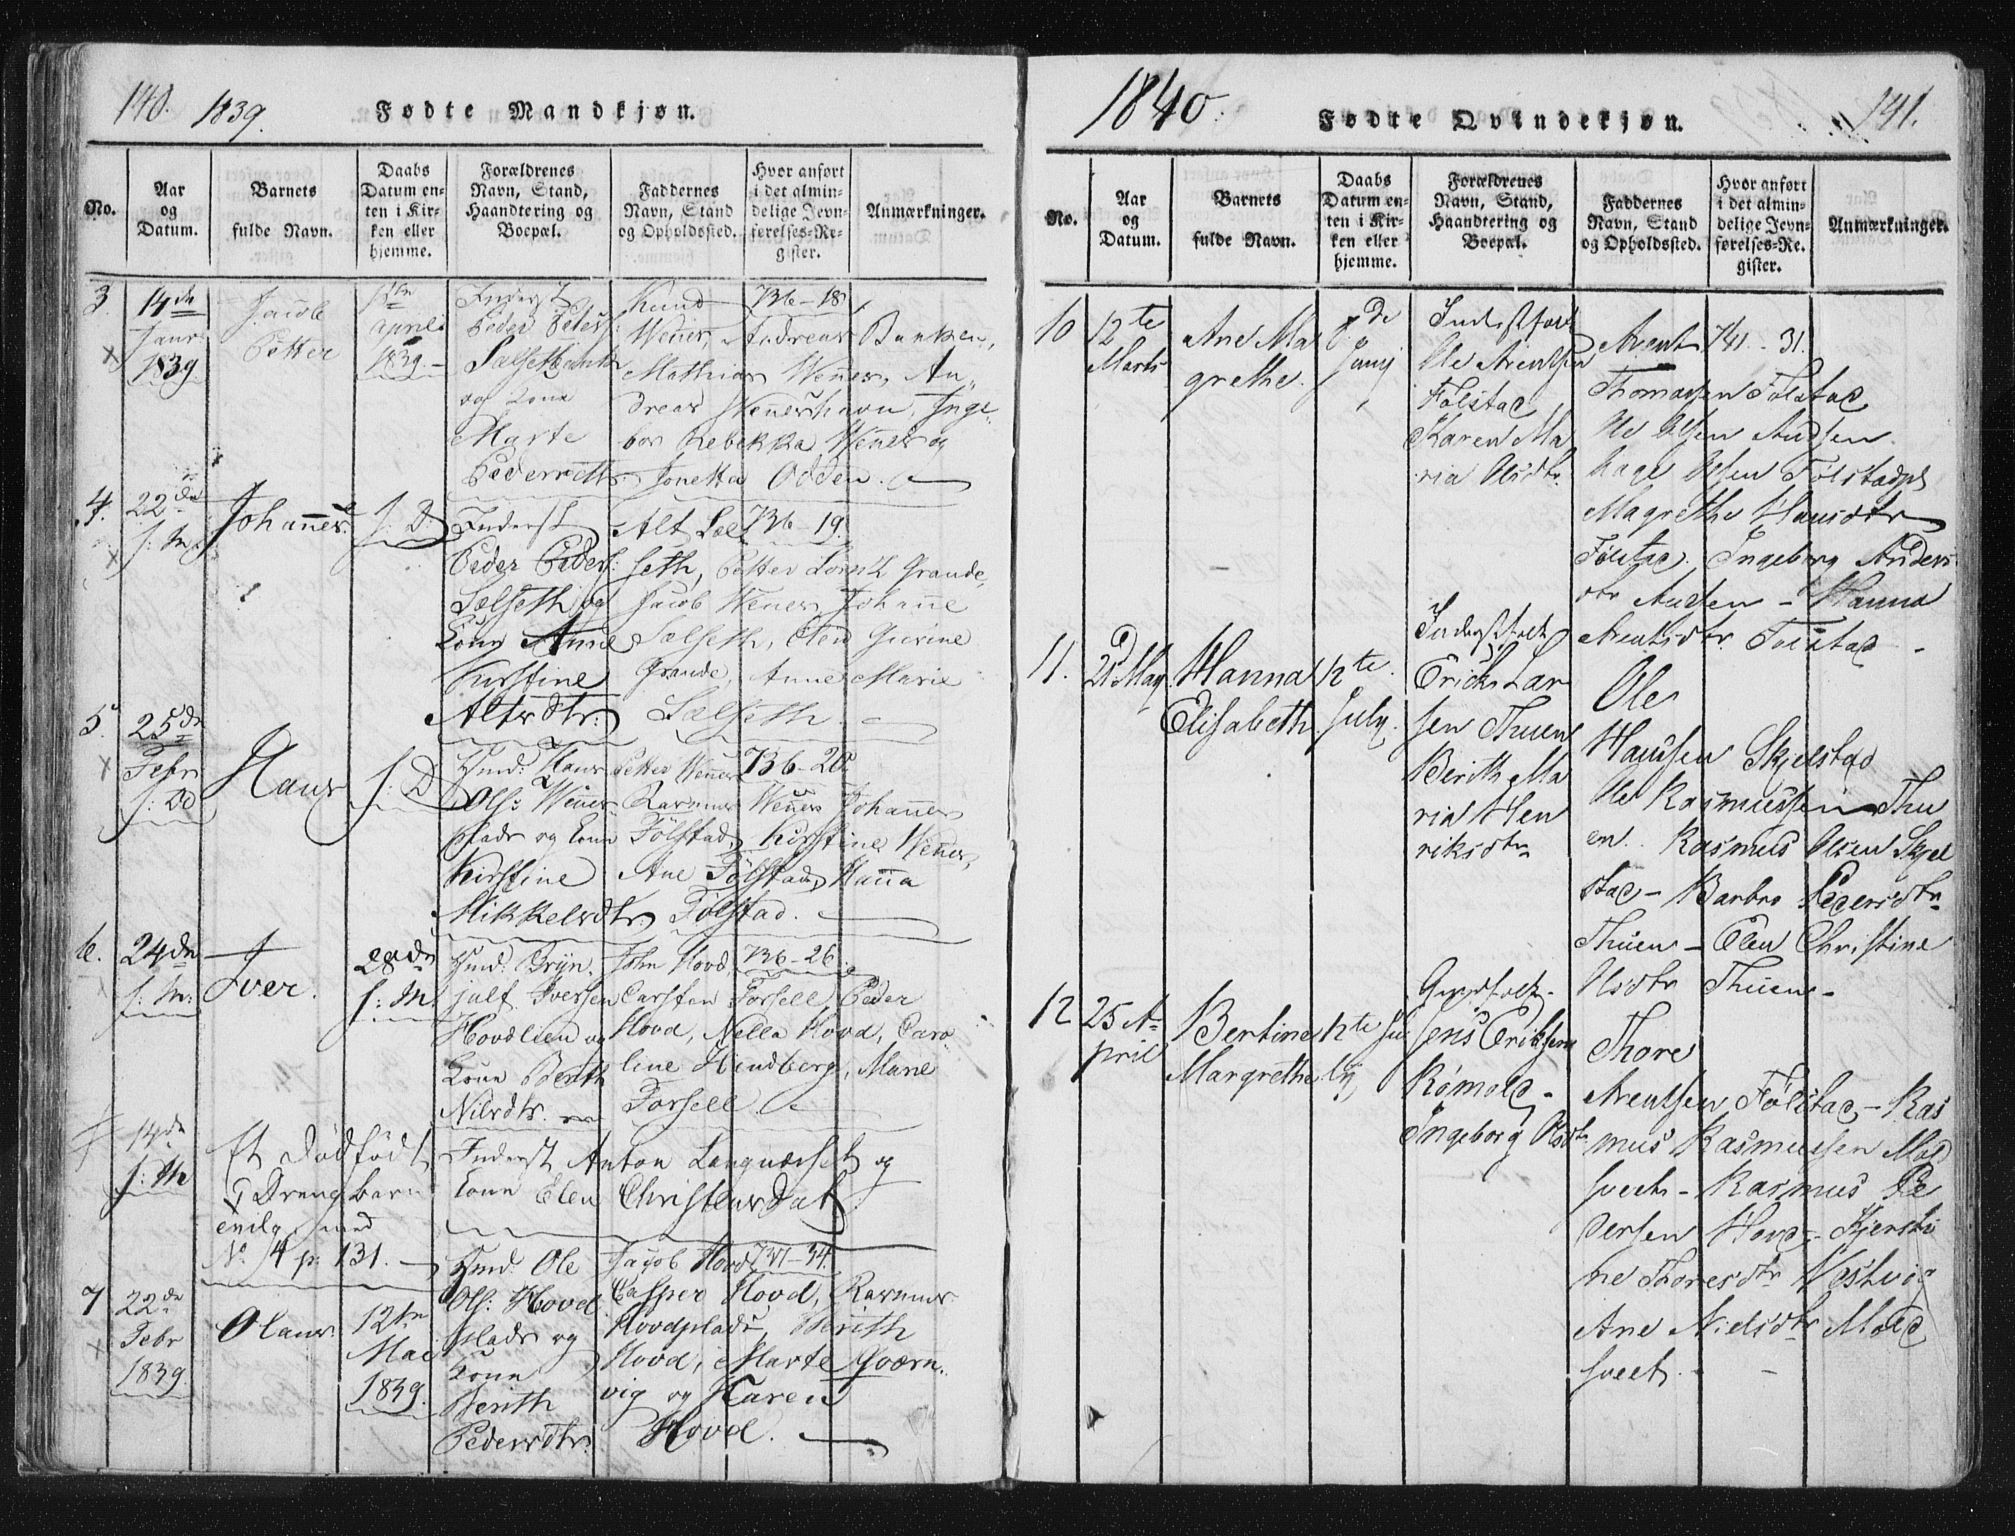 140. 1839. Fødte Mandkjøn.
No.
Aar
og
Datum.
Barnets
fulde Navn.
Daabs
Datum en-
ten i Kir-
ken eller
hjemme.
Forældrenes
Navn, Stand,
Haandtering og
Boepæl.
Faddernes
Navn, Stand
og Opholdssted.
Hvor anført
i det almin-
delige Jevn-
førelses-Re-
gister.
Anmærkninger.
3.
14de
Janr
1839
Jacob
Petter
april
1839.
Inderst
Peder Peders:
og Kone
Marte
Knud
Wenes, Andreas Banken,
Mathias Wenes, An-
dreas Weneshavn, Inge-
bor Rebekka Wenes og
Jonetta Odden.
736-18
4.
22de
s: M:
Johannes.
s: D:
Inderst
Peder Peders:
Sælseth og
Kone Anne
Kirstine
Altsdtr.
Alt Sæl-
seth, Petter Lorntz Grande,
Jacob Wenes, Johanne
Sælseth, Elen Gurine
Grande, Anne Marie
Sælseth.
736-19.
5.
25de
Febr
s: Dd
Hans
s: D
Hmd: Hans
Ols: Wenes
plads og Kone
Kirstine
Mikkelsdtr.
Petter Wenes
Rasmus Wenes Johannes
Følstad, Kirstine Wenes,
Ane Følstad, Hanna
Følstad.
736-20
6.
24de
s: M:
Iver.
28de
s: M
Hmd: Bryn-
julf Iversen
Hovdlien og
Kone Berith
Nilsdtr.
John Hovd,
Carsten Forsell, Peder
Hovd, Nella Hovd, Caro-
line Hindberg, Marie
Forsell
736-26
14de
s: M
Et dødfødt
Drengebarn
evila med
No. 4 p. 131.
Inderst Anton Langnæsset og
Kone Elen Christensdat
7
22de
Febr
1839
Olaus
12te
Mai
1839.
Hmd: Ole
Ols: Hovd
plads og
Kone
Berith
Pedersdtr.
Jacob Hovd
Casper Hovd, Rasmus
Hovdplads, Berith
Hovd, Marte Qværn-
vig og Karen
Hovd.
737-34.
1840. Fødte Qvindekjøn. 141.
No.
Aar
og
Datum.
Barnets
fulde Navn.
Daabs
Datum en-
ten i Kir-
ken eller
hjemme.
Forældrenes
Navn, Stand,
Haandtering og
Boepæl.
Faddernes
Navn, Stand
og Opholdssted.
Hvor anført
i det almin-
delige Jevn-
førelses-Re-
gister.
Anmærkninger.
10
12te
Marts
Ane Ma
grethe.
Juny
Inderstfolk
Ole Arentsen
Følstad
Karen Ma
ria Olsdtr.
Arent
Thomassen Følstad
Ole Olsen Audsen
Hage Olsen Følstadpl
Magrethe Hansdtr
Følstad. Ingeborg Anders
dtr Audsen - Hanna
Arentsdtr Følstad -
741-31.
11.
21 May
Hanna
Elisabeth
12te
July.
Inderstfolk
Erick Lar
sen Thuen
Berith Ma
ria Hen
riksdtr
Ole
Hanssen Skjelstad
Ole Rasmussen Thu
en. Rasmus Olsen Skjel
stad - Barbro Pedersdtr
Thuen - Elen Christine
Olsdtr Thuen -
12
25 A-
pril
Bertine
Margrethe
12te Ju
ly,
Gaardfolk
Jens Eriksen
Rømold -
Ingeborg Olsdtr
Thore
Arentsen Følstad - Ras
mus Rasmussen Mold
sveet - Rasmus Pe
dersen Hovd - Kjersti
ne Thoresdtr Vestvig
Ane Nielsdtr Mold
sveet. -